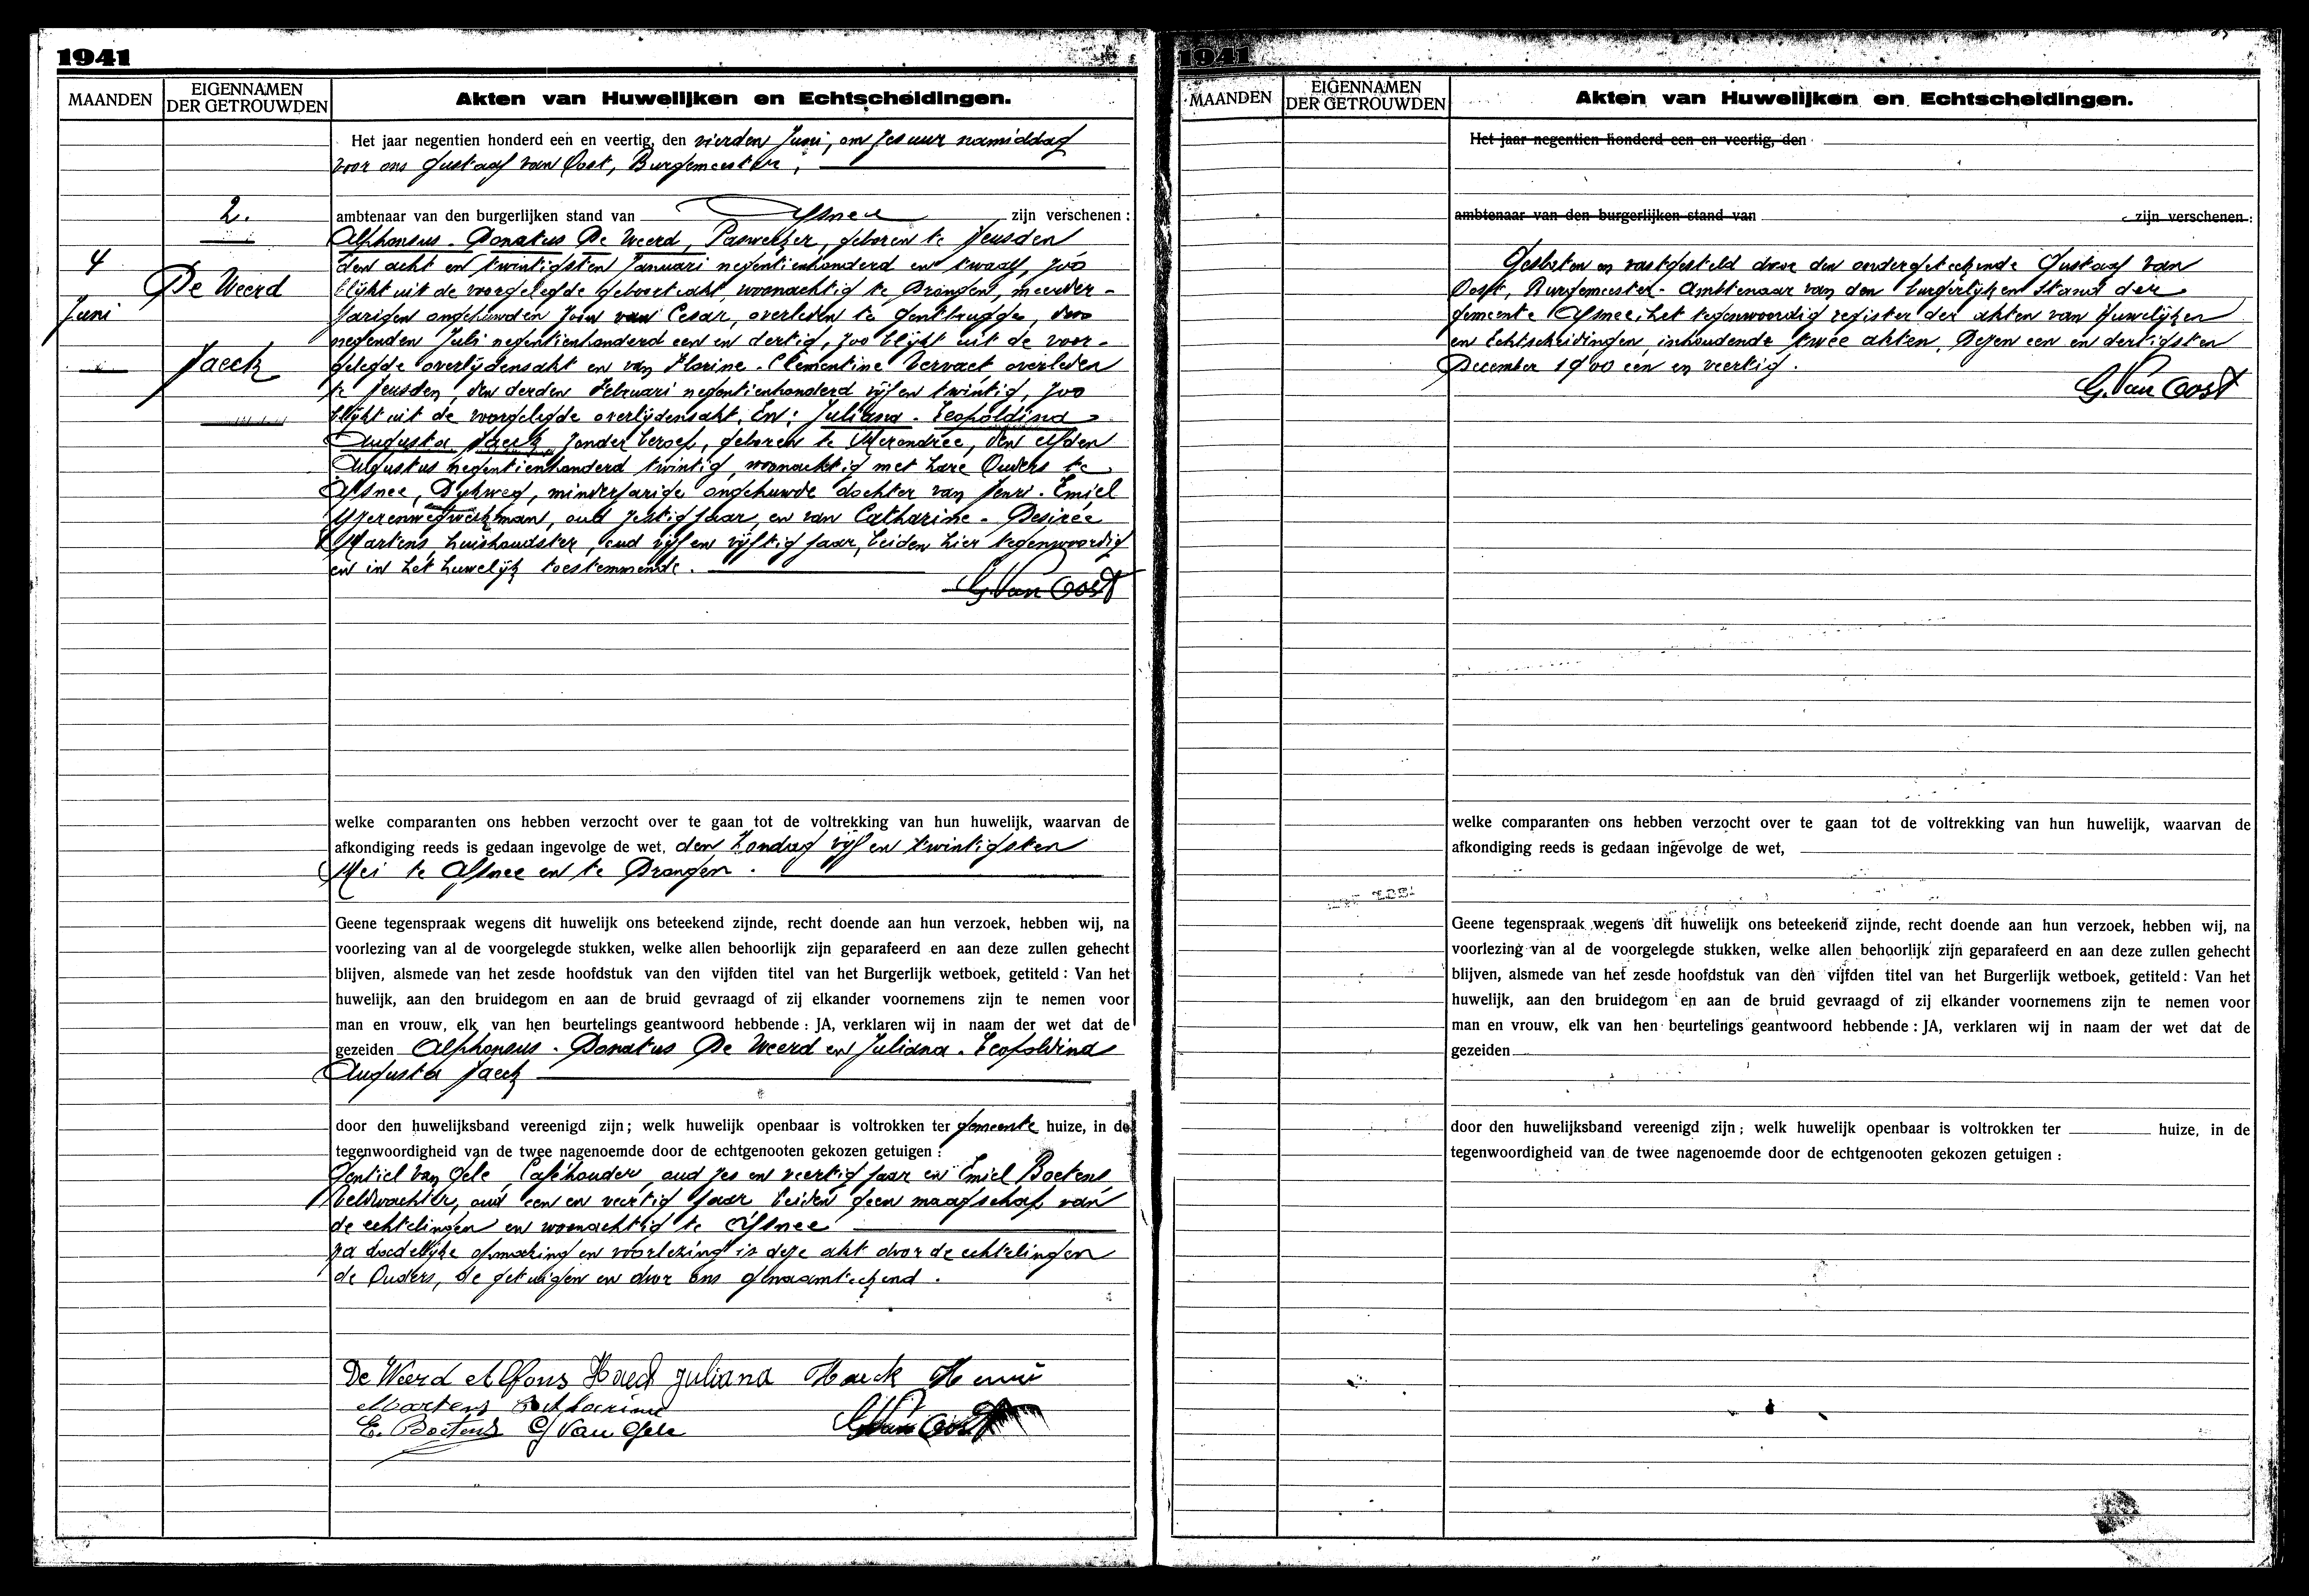 1941
MAANDEN
EIGENNAMEN
DER GETROUWDEN
Akten van Huwelijken en Echtscheidingen.
2.
4
Juni
De Weerd
Haeck
Het jaar negentien honderd een en veertig, den vierden Juni, om zes uur namiddag
voor ons Gustaaf van Oost, Burgemeester,
ambtenaar van den burgerlijken stand van Afsnee zijn verschenen :
Alphonsus - Donatus De Weerd, Paswerker, geboren te Heusden
den acht en twintigsten Januari negentienhonderd en twaalf, zoo
blijkt uit de voorgelegde geboorteakt, woonachtig te Drongen, meerder-
jarigen ongehuwden zoon van Cesar, overleden te Gentbrugge, den
negenden Juli negentienhonderd een en dertig, zoo blijkt uit de voor-
gelegde overlijdensakt en van Florine - Clementine Vervaet overleden
te Heusden, den derden Februari negentienhonderd vijf en twintig, zoo
blijkt uit de voorgelegde overlijdensakt. En: Juliana - Leopoldina -
Augusta Haeck, zonder beroep, geboren te Merendree, den elfden
Augustus negentienhonderd twintig, woonachtig met hare Ouders te
Afsnee, Dijkweg, minderjarige ongehuwde dochter van Henri - Emiel
IJzerenwegwerkman, oud zestig jaar, en van Catharine - Desirée
Martens, huishoudster, oud vijf en vijftig jaar, beiden hier tegenwoordig
en in het huwelijk toestemmende.
G. Van Oost
welke comparanten ons hebben verzocht over te gaan tot de voltrekking van hun huwelijk, waarvan de
afkondiging reeds is gedaan ingevolge de wet, den Zondag vijf en twintigsten
Mei te Afsnee en te Drongen.
Geene tegenspraak wegens dit huwelijk ons beteekend zijnde, recht doende aan hun verzoek, hebben wij, na
voorlezing van al de voorgelegde stukken, welke allen behoorlijk zijn geparafeerd en aan deze zullen gehecht
blijven, alsmede van het zesde hoofdstuk van den vijfden titel van het Burgerlijk wetboek, getiteld : Van het
huwelijk, aan den bruidegom en aan de bruid gevraagd of zij elkander voornemens zijn te nemen voor
man en vrouw, elk van hen beurtelings geantwoord hebbende : JA, verklaren wij in naam der wet dat de
gezeiden Alphonsus - Donatus De Weerd en Juliana - Leopoldina
Augusta Haeck
door den huwelijksband vereenigd zijn ; welk huwelijk openbaar is voltrokken ter gemeente huize, in de
tegenwoordigheid van de twee nagenoemde door de echtgenooten gekozen getuigen :
Gentiel Van Gele, Caféhouder, oud zes en veertig jaar en Emiel Boetens
Veldwachter, oud een en veertig jaar, beiden geen maagschap van
de echtelingen en woonachtig te Afsnee
Na dadelijke opmaking en voorlezing is deze akt door de echtelingen
de Ouders, de getuigen en door ons genaamteekend.
De Weerd Alfons Haeck Juliana Haeck Henri
Martens Catharine
E. Boetens G Van Gele G. Van Oost
1941
MAANDEN
EIGENNAMEN
DER GETROUWDEN
Akten van Huwelijken en Echtscheidingen.
Het jaar negentien honderd een en veertig, den
ambtenaar van den burgerlijken stand van zijn verschenen :
Gesloten en vastgesteld door den ondergeteekende Gustaaf van
Oost, Burgemeester - Ambtenaar van den burgerlijken Stand der
gemeente Afsnee, het tegenwoordig register der akten van Huwelijken
en Echtscheidingen, inhoudende twee akten. Dezen een en dertigsten
December 1900 een en veertig.
G. Van Oost
welke comparanten ons hebben verzocht over te gaan tot de voltrekking van hun huwelijk, waarvan de
afkondiging reeds is gedaan ingevolge de wet,
Geene tegenspraak wegens dit huwelijk ons beteekend zijnde, recht doende aan hun verzoek, hebben wij, na
voorlezing van al de voorgelegde stukken, welke allen behoorlijk zijn geparafeerd en aan deze zullen gehecht
blijven, alsmede van het zesde hoofdstuk van den vijfden titel van het Burgerlijk wetboek, getiteld : Van het
huwelijk, aan den bruidegom en aan de bruid gevraagd of zij elkander voornemens zijn te nemen voor
man en vrouw, elk van hen beurtelings geantwoord hebbende : JA, verklaren wij in naam der wet dat de
gezeiden
door den huwelijksband vereenigd zijn ; welk huwelijk openbaar is voltrokken ter huize, in de
tegenwoordigheid van de twee nagenoemde door de echtgenooten gekozen getuigen :